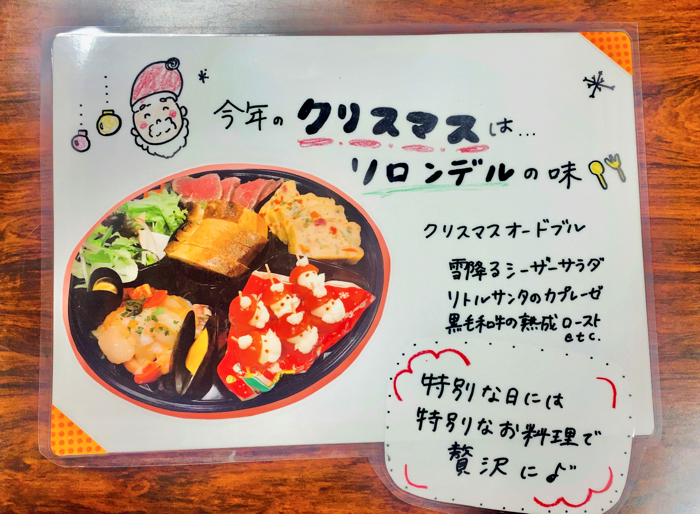 今年のクリスマスは...
リロンデルの味
クリスマスオードブル
雪降るシーザーサラダ
リトルサンタのカプレーゼ
黒毛和牛の熟成ロースト
etc.
特別な日には
特別なお料理で
贅沢に♪